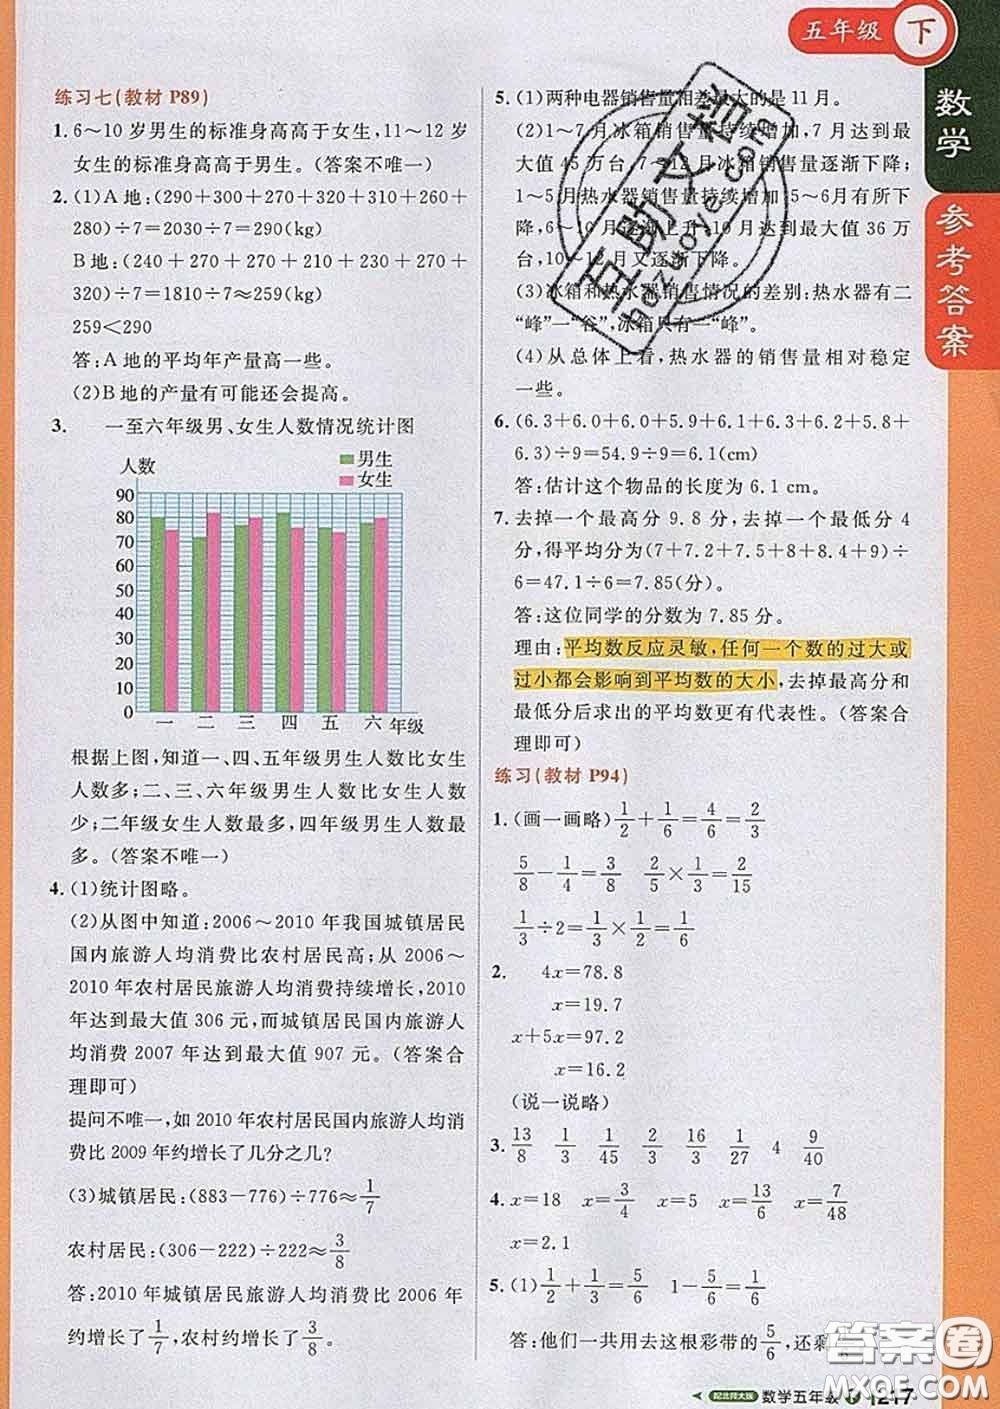 五年级 下
数学
参考答案
练习七(教材 P89)
1. 6～10 岁男生的标准身高高于女生,11～12 岁
女生的标准身高高于男生。(答案不唯一)
2. (1)A 地:(290+300+270+320+310+260+
280)÷7=2030÷7=290(kg)
B 地:(240+210+270+230+270+270+
320)÷7=1810÷7≈259(kg)
259<290
答:A 地的平均年产量高一些。
(2)B 地的产量有可能还会提高。
3. 一至六年级男、女生人数情况统计图
人数
男生
女生
90
80
70
60
50
40
30
20
10
0
一 二 三 四 五 六 年级
根据上图,知道一、四、五年级男生人数比女生
人数多;二、三、六年级男生人数比女生人数
少;二年级女生人数最多,四年级男生人数最
多。(答案不唯一)
4. (1)统计图略。
(2)从图中知道:2006～2010 年我国城镇居民
国内旅游人均消费比农村居民高;从 2006～
2010 年农村居民旅游人均消费持续增长,2010
年达到最大值 306 元,而城镇居民国内旅游人
均消费 2007 年达到最大值 907 元。(答案合
理即可)
提问不唯一,如 2010 年农村居民国内旅游人均消
费比 2009 年约增长了几分之几?
(3)城镇居民:(883-776)÷776≈1/7
农村居民:(306-222)÷222≈3/8
答:2010 年城镇居民国内旅游人均消费比 2006 年
约增长了1/7,农村约增长了3/8。
5. (1)两种电器销售量相差最大的是 11 月。
(2)1～7 月冰箱销售量持续增加,7 月达到最
大值 45 万台,7～12 月冰箱销售量逐渐下降;
1～5 月热水器销售量持续增加,5～6月有所下
降,6～10 月又逐渐上升,10 月达到最大值 36 万
台,10～12 月又逐渐下降。
(3)冰箱和热水器销售情况的差别:热水器有二
“峰”一“谷”,冰箱只有一“峰”。
(4)从总体上看,热水器的销售量相对稳定
一些。
6. (6.3+6.0+6.0+5.9+6.1+6.3+6.2+5.8+
6.3)÷9=54.9÷9=6.1(cm)
答:估计这个物品的长度为 6.1 cm。
7. 去掉一个最高分 9.8 分,去掉一个最低分 4
分,得平均分为(7+7.2+7.5+8+8.4+9)÷
6=47.1÷6=7.85(分)。
答:这位同学的分数为 7.85 分。
理由:平均数反应灵敏,任何一个数的过大或
过小都会影响到平均数的大小,去掉最高分和
最低分后求出的平均数更有代表性。(答案合
理即可)
练习(教材 P94)
1. (画一画略)1/2+1/6=4/6=2/3
5/8-1/4=3/8 2/5×1/3=2/15
1/3÷2=1/3×1/2=1/6
2. 4x=78.8
x=19.7
x+5x=97.2
x=16.2
(说一说略)
3. 13/8 1/3 1/45 2/3 16/3 1/27 4 9/40
4. x=18 x=3/4 x=5 x=13/6 x=7/6
x=2.1
5. (1)1/2+1/3=5/6 1-5/6=1/6
答:他们一共用去这根彩带的5/6,还剩
互助文档
hdzuoye.com
答案圈
配北师大版 数学五年级 下 217